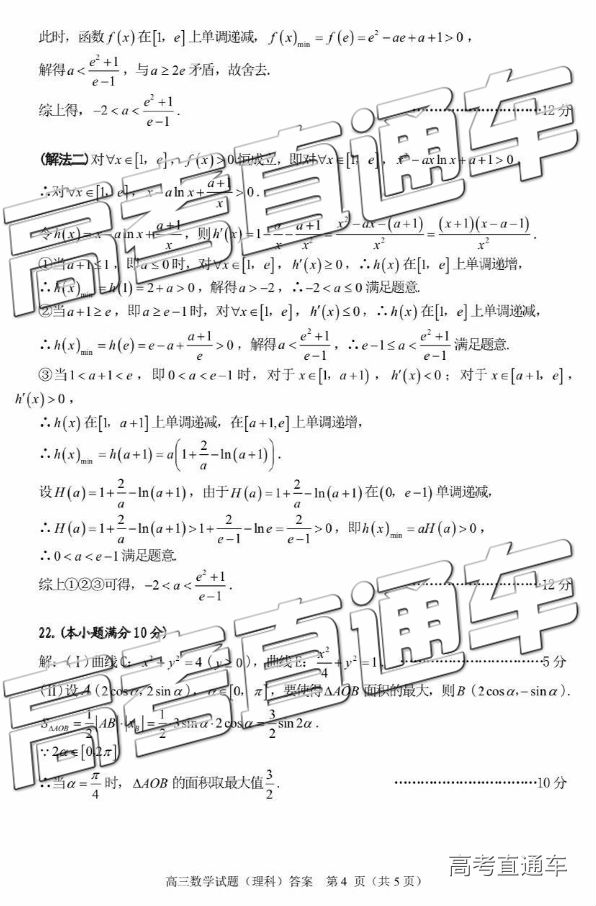 此时，函数f(x)在[1，e]上单调递减，f(x)min=f(e)=e²-ae+a+1>0，
解得a<(e²+1)/(e-1)，与a≥2e矛盾，故舍去.
综上得，-2<a<(e²+1)/(e-1). ……12分
(解法二)对∀x∈[1，e]，f(x)>0恒成立，即对∀x∈[1，e]，x²-axlnx+a+1>0
∴对∀x∈[1，e]，x-alnx+(a+1)/x>0.
令h(x)=x-alnx+(a+1)/x，则h′(x)=1-a/x-(a+1)/x²=(x²-ax-(a+1))/x²=((x+1)(x-a-1))/x².
①当a+1≤1，即a≤0时，对∀x∈[1，e]，h′(x)≥0，∴h(x)在[1，e]上单调递增，
∴h(x)min=h(1)=2+a>0，解得a>-2，∴-2<a≤0满足题意.
②当a+1≥e，即a≥e-1时，对∀x∈[1，e]，h′(x)≤0，∴h(x)在[1，e]上单调递减，
∴h(x)min=h(e)=e-a+(a+1)/e>0，解得a<(e²+1)/(e-1)，∴e-1≤a<(e²+1)/(e-1)满足题意.
③当1<a+1<e，即0<a<e-1时，对于x∈[1，a+1)，h′(x)<0；对于x∈[a+1，e]，
h′(x)>0，
∴h(x)在[1，a+1]上单调递减，在[a+1,e]上单调递增，
∴h(x)min=h(a+1)=a(1+2/a-ln(a+1)).
设H(a)=1+2/a-ln(a+1)，由于H(a)=1+2/a-ln(a+1)在(0，e-1)单调递减，
∴H(a)=1+2/a-ln(a+1)>1+2/(e-1)-lne=2/(e-1)>0，即h(x)min=aH(a)>0，
∴0<a<e-1满足题意.
综上①②③可得，-2<a<(e²+1)/(e-1). ……12分
22.(本小题满分10分)
解：(Ⅰ)曲线C：x²+y²=4(y≥0)，曲线E：x²/4+y²=1. ……5分
(Ⅱ)设A(2cosα，2sinα)，α∈[0，π]，要使得ΔAOB面积的最大，则B(2cosα，-sinα).
SΔAOB=1/2|AB|·|xB|=1/2·3sinα·2cosα=3/2sin2α.
∵2α∈[0,2π]
∴当α=π/4时，ΔAOB的面积取最大值3/2. ……10分
高考直通车
高考直通车
高三数学试题（理科）答案 第4页（共5页）
高考直通车